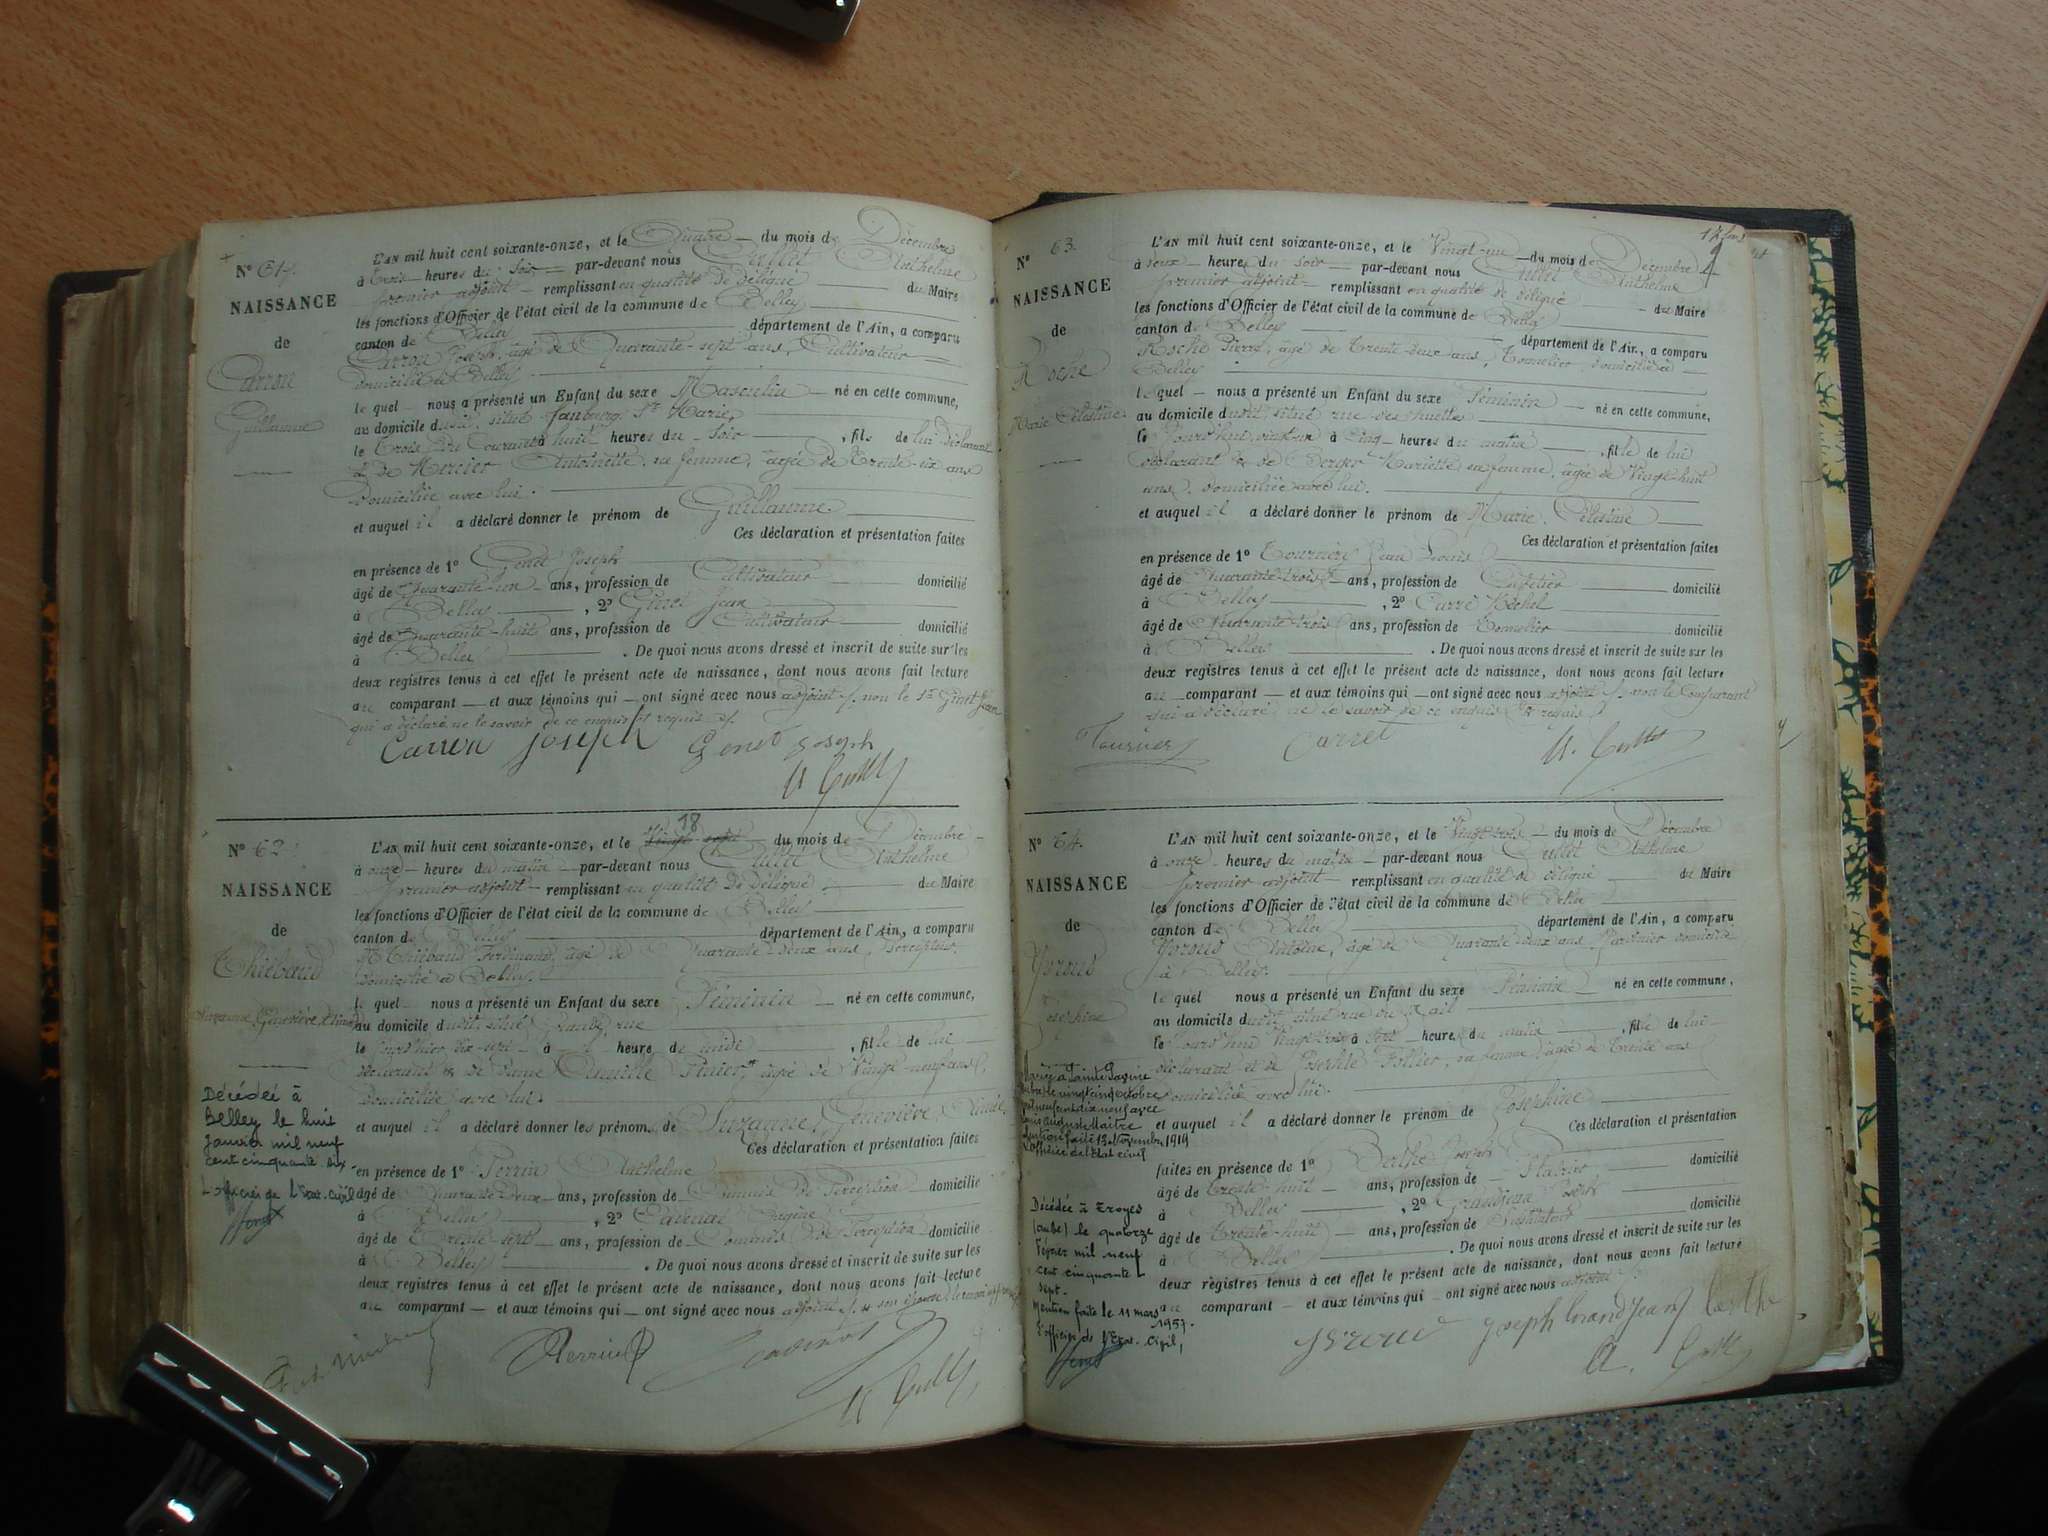 N° 61.
NAISSANCE
de
Carron
Guillaume
L'AN mil huit cent soixante-onze, et le Quatre du mois de Décembre
à trois heures du soir par-devant nous Cullet Anthelme
premier adjoint remplissant en qualité de délégué du Maire
les fonctions d'Officier de l'état civil de la commune de Belley
canton de Belley département de l'Ain, a comparu
Carron Joseph, âgé de Quarante-sept ans, Cultivateur
domicilié à Belley
lequel nous a présenté un Enfant du sexe Masculin né en cette commune,
au domicile dudit, situé faubourg Ste Marie,
le trois du courant à huit heures du soir, fils de lui déclarant
& de Mercier Antoinette, sa femme, âgée de trente-six ans
domiciliée avec lui.
et auquel il a déclaré donner le prénom de Guillaume.
Ces déclaration et présentation faites
en présence de 1° Genet Joseph
âgé de Quarante-un ans, profession de Cultivateur domicilié
à Belley, 2° Jean
âgé de Quarante-huit ans, profession de Cultivateur domicilié
à Belley. De quoi nous avons dressé et inscrit de suite sur les
deux registres tenus à cet effet le présent acte de naissance, dont nous avons fait lecture
au comparant et aux témoins qui ont signé avec nous adjoint, non le Jean
qui a déclaré ne le savoir de ce enquis et requis
Carron Joseph Genet Joseph
A. Cullet
N° 62.
NAISSANCE
de
Thiébaud
Suzanne Geneviève
Décédée à
Belley le huit
Janvier mil neuf
cent cinquante six
L'officier de l'Etat-civil
L'AN mil huit cent soixante-onze, et le Vingt-sept 18 du mois de Décembre
à onze heures du matin par-devant nous Cullet Anthelme
premier adjoint remplissant en qualité de délégué du Maire
les fonctions d'Officier de l'état civil de la commune de Belley
canton de Belley département de l'Ain, a comparu
Thiébaud Ferdinand, âgé de Quarante-deux ans, Percepteur,
domicilié à Belley.
lequel nous a présenté un Enfant du sexe Féminin né en cette commune,
au domicile dudit, situé Grande rue
le jour d'hier à heure de midi, fille de lui
déclarant & de Dame âgée de Vingt-neuf ans,
domiciliée avec lui.
et auquel il a déclaré donner les prénoms de Suzanne, Geneviève
Ces déclaration et présentation faites
en présence de 1° Perrin Anthelme
âgé de Quarante-deux ans, profession de Commis de Perception domicilié
à Belley, 2° Eugène
âgé de Trente-sept ans, profession de Commis de Perception domicilié
à Belley. De quoi nous avons dressé et inscrit de suite sur les
deux registres tenus à cet effet le présent acte de naissance, dont nous avons fait lecture
au comparant et aux témoins qui ont signé avec nous adjoint
Perrin
A. Cullet
N° 63.
NAISSANCE
de
Roche
Marie Célestine
L'AN mil huit cent soixante-onze, et le Vingt-un du mois de Décembre
à deux heures du soir par-devant nous Cullet Anthelme
premier adjoint remplissant en qualité de délégué du Maire
les fonctions d'Officier de l'état civil de la commune de Belley
canton de Belley département de l'Ain, a comparu
Roche Pierre, âgé de trente-deux ans, Tonnelier, domicilié à
Belley
lequel nous a présenté un Enfant du sexe Féminin né en cette commune,
au domicile dudit situé rue des
le jourd'hui vingt-un à cinq heures du matin, fille de lui
déclarant & de Berger Mariette, sa femme, âgée de Vingt-huit
ans, domiciliée avec lui.
et auquel il a déclaré donner le prénom de Marie Célestine
Ces déclaration et présentation faites
en présence de 1° Tournier Jean Louis
âgé de Quarante-trois ans, profession de Cafetier domicilié
à Belley, 2° Carret Michel
âgé de Quarante-trois ans, profession de Tonnelier domicilié
à Belley. De quoi nous avons dressé et inscrit de suite sur les
deux registres tenus à cet effet le présent acte de naissance, dont nous avons fait lecture
au comparant et aux témoins qui ont signé avec nous adjoint, non le Comparant
qui a déclaré ne le savoir de ce enquis & requis
Tournier Carret A. Cullet
N° 64.
NAISSANCE
de
Joséphine
Marié à Sainte Savine
(Aube) le vingt cinq octobre
mil neuf cent dix neuf avec
Auguste Maitre
Mention faite 13 Novembre 1919
L'officier de l'état civil
Décédée à Troyes
(Aube) le quatorze
Février mil neuf
cent cinquante
sept.
Mention faite le 11 mars
1957.
L'officier de l'Etat-Civil,
L'AN mil huit cent soixante-onze, et le Vingt-trois du mois de Décembre
à onze heures du matin par-devant nous Cullet Anthelme
premier adjoint remplissant en qualité de délégué du Maire
les fonctions d'Officier de l'état civil de la commune de Belley
canton de Belley département de l'Ain, a comparu
Antoine, âgé de Quarante-deux ans, domicilié
à Belley.
lequel nous a présenté un Enfant du sexe Féminin né en cette commune,
au domicile dudit, situé rue du
le jourd'hui vingt-trois à sept heures du matin, fille de lui
déclarant et de sa femme, âgée de trente ans
domiciliée avec lui.
et auquel il a déclaré donner le prénom de Joséphine
Ces déclaration et présentation
faites en présence de 1° Berthe Joseph domicilié
âgé de trente-huit ans, profession de Plâtrier
à Belley, 2° Grandjean Joseph domicilié
âgé de trente-huit ans, profession de Instituteur
à Belley. De quoi nous avons dressé et inscrit de suite sur les
deux registres tenus à cet effet le présent acte de naissance, dont nous avons fait lecture
au comparant et aux témoins qui ont signé avec nous adjoint
Joseph Grandjean Berthe
A. Cullet